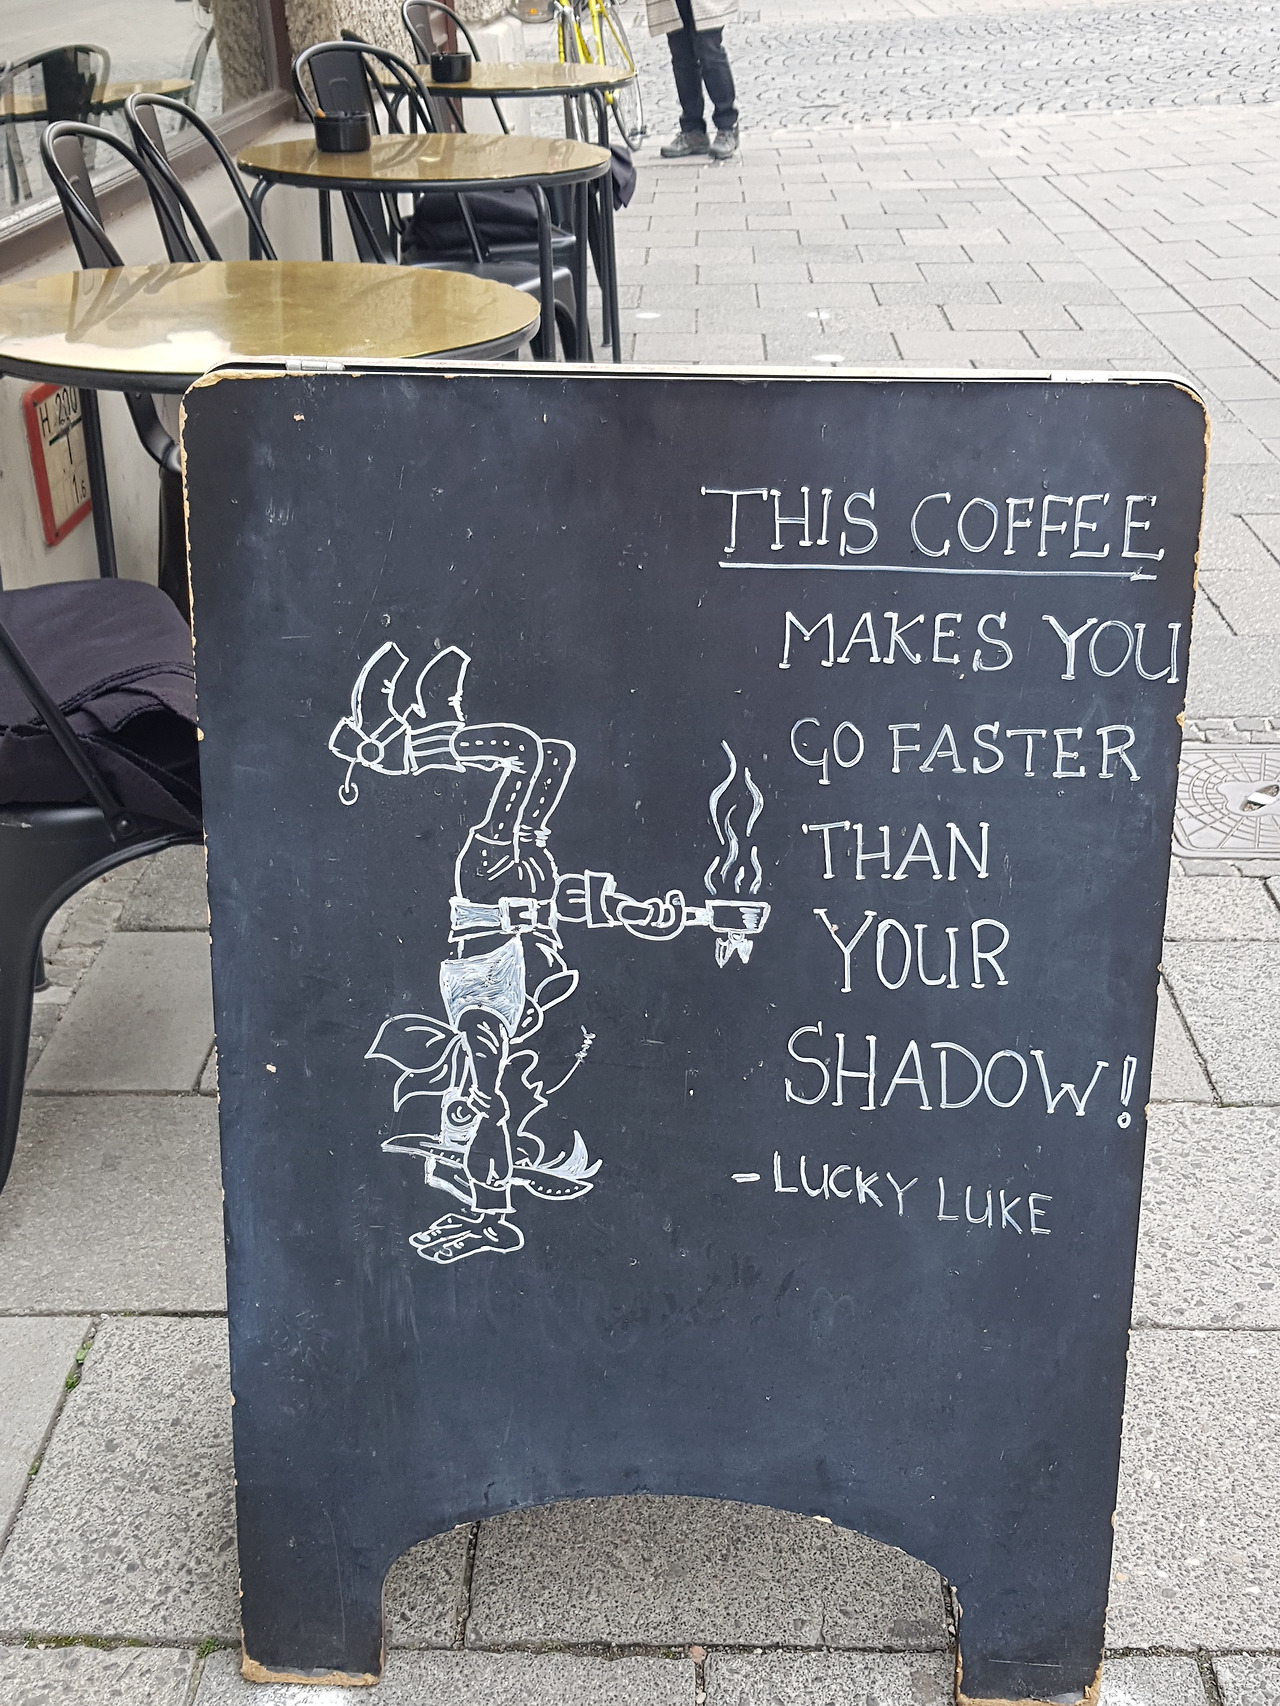 H 200
1.6
THIS COFFEE
MAKES YOU
GO FASTER
THAN
YOUR
SHADOW!
- LUCKY LUKE